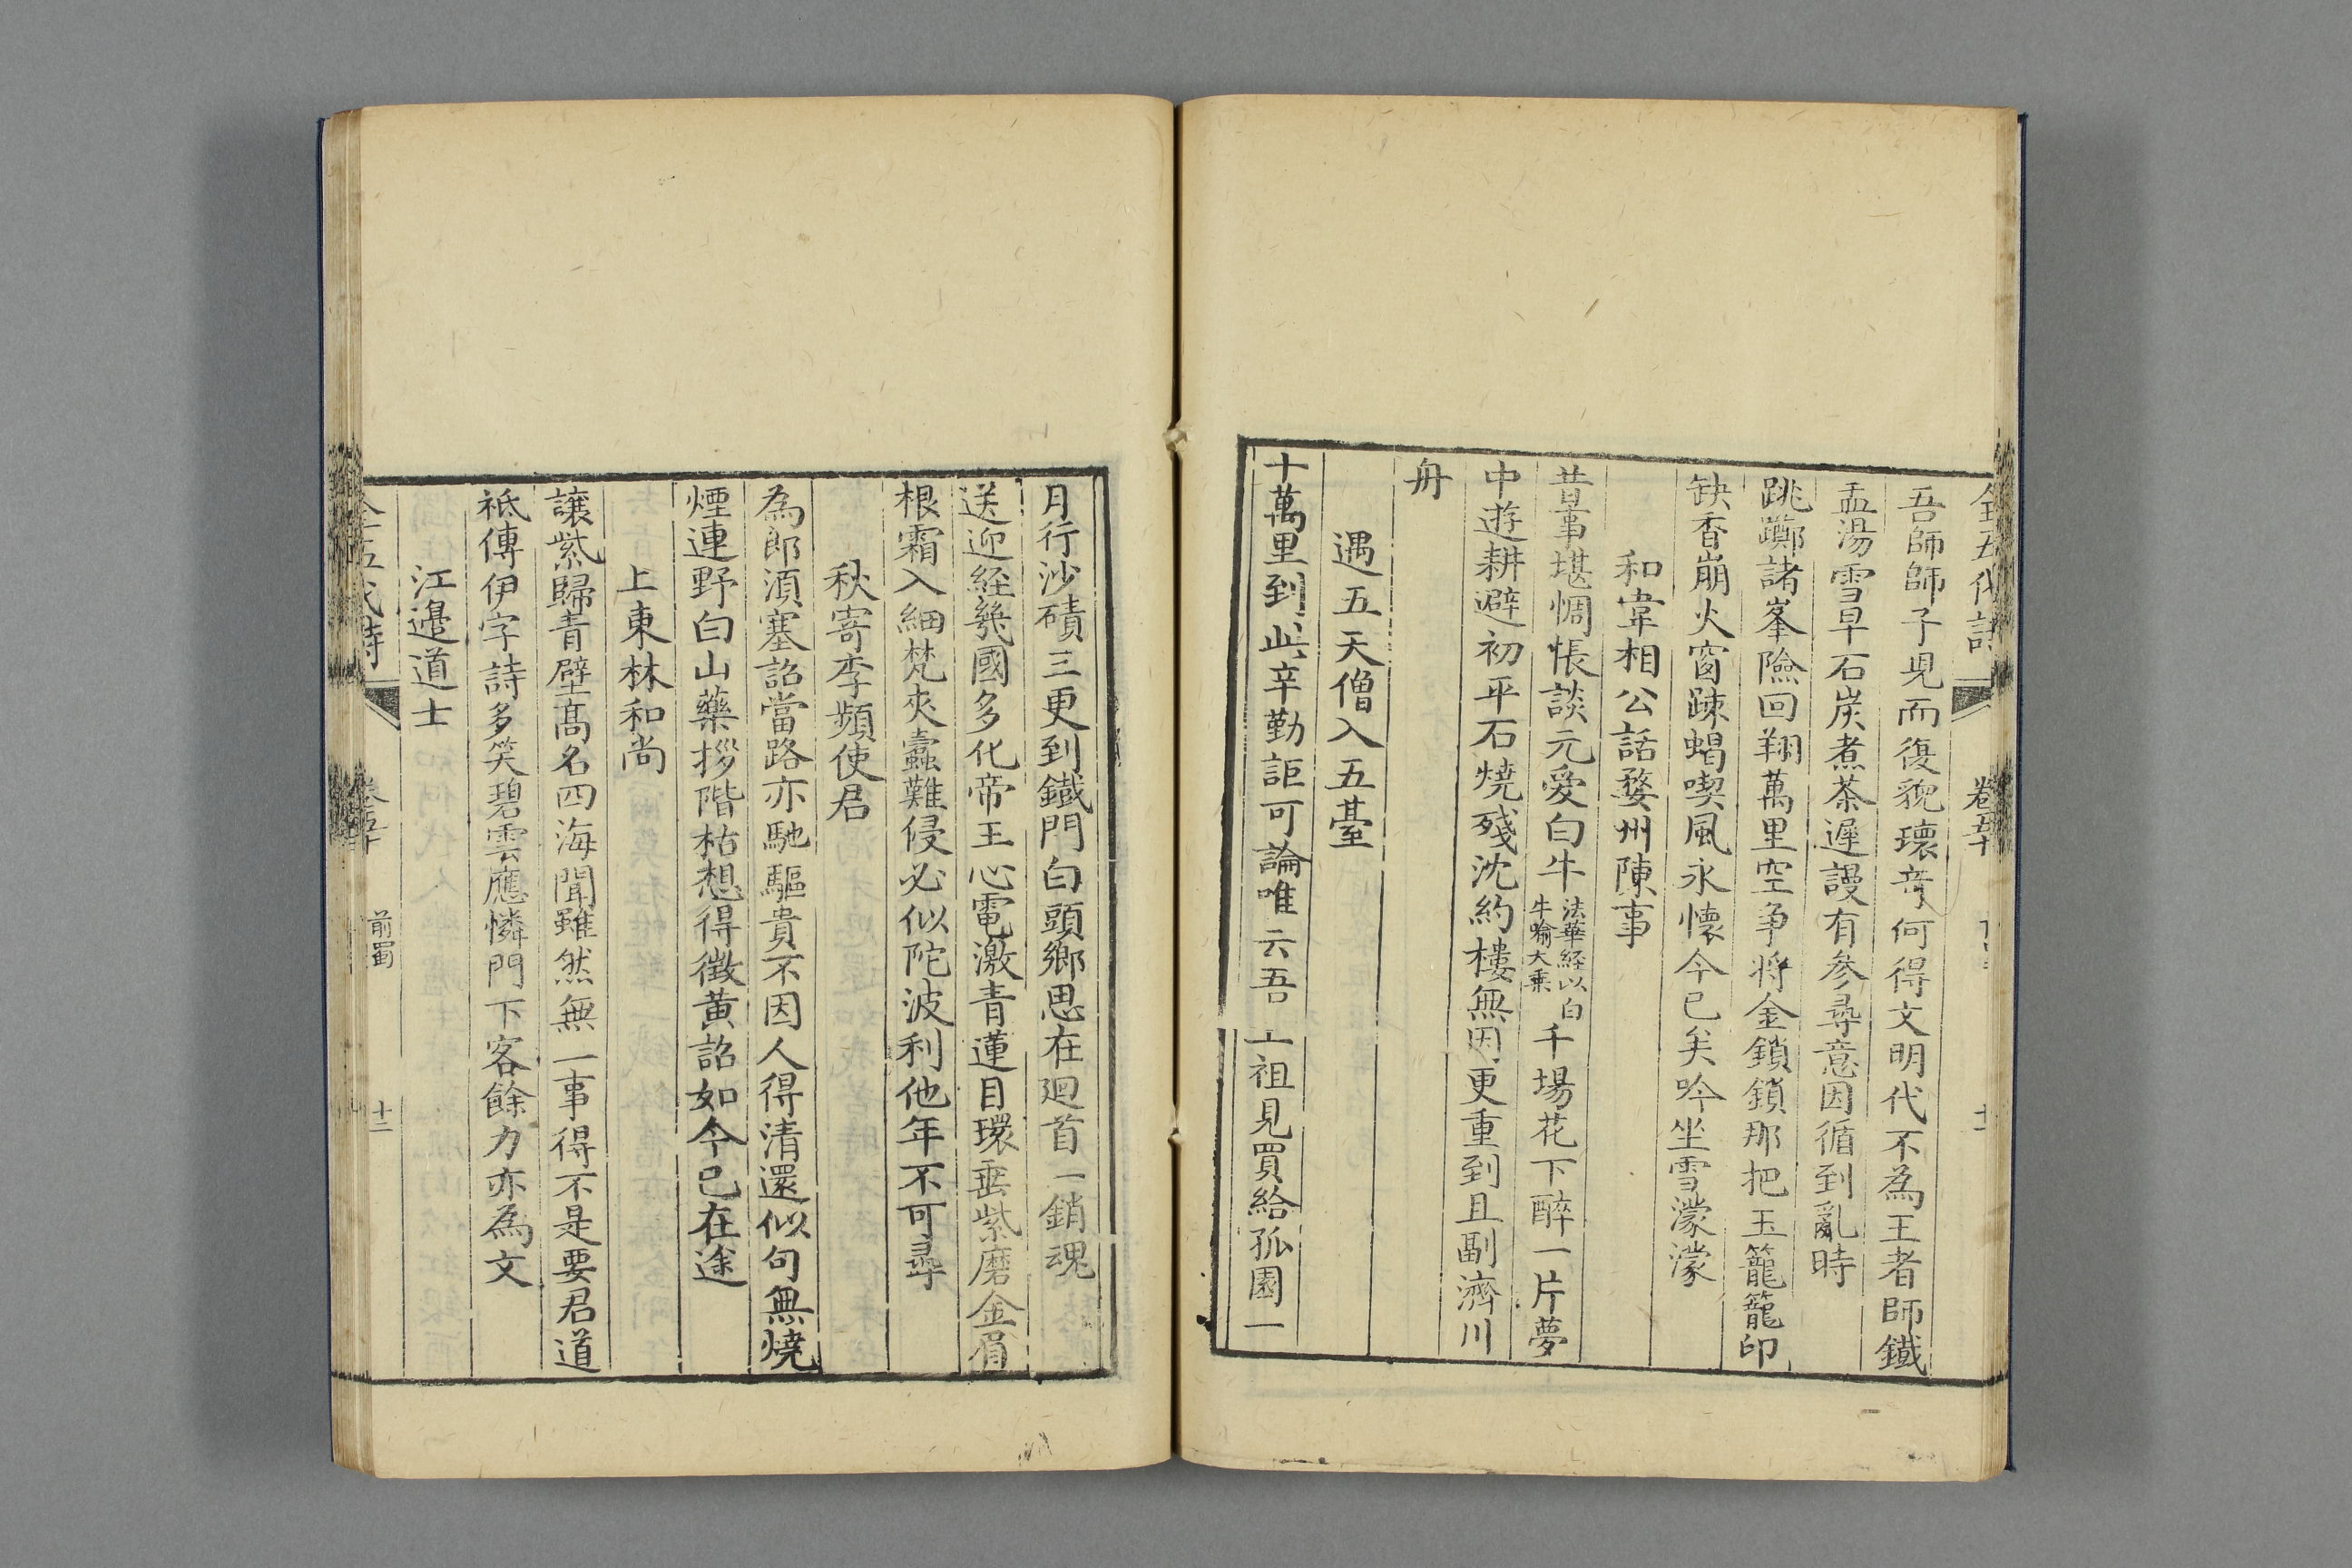 吾師師子兒而復貌瓌竒何得文明代不為王者師鐵
盂湯雪早石炭煮茶遲謾有參尋意因循到亂時
跳躑諸峯險回翔萬里空争將金鎖鎖那把玉籠籠印
缺香崩火窗疎蝎喫風永懷今已矣吟坐雪濛濛
和韋相公話婺州陳事
昔事堪惆悵談元愛白牛法華経以白牛喻大乗千場花下醉一片夢
中遊耕避初平石燒殘沈約樓無因更重到且副濟川
舟
遇五天僧入五臺
十萬里到此辛勤詎可論唯云吾上祖見買給孤園一
月行沙磧三更到鐵門白頭鄉思在迴首一銷魂
送迎経幾國多化帝王心電激青蓮目環垂紫磨金眉
根霜入細梵夾蠹難侵必似陀波利他年不可尋
秋寄李頻使君
為郎須塞詔當路亦馳驅貴不因人得清還似句無燒
煙連野白山藥拶階枯想得徵黄詔如今已在途
上東林和尚
讓紫歸青壁高名四海聞雖然無一事得不是要君道
祗傳伊字詩多笑碧雲應憐門下客餘力亦為文
江邉道士
前蜀
十二